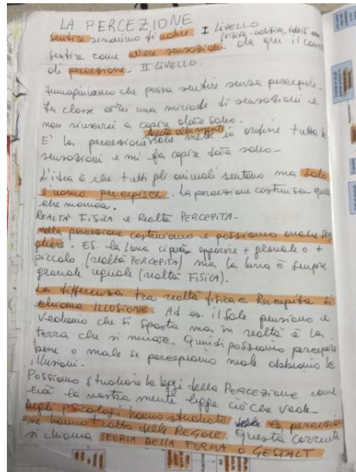 LA PERCEZIONE
sentire sinonimo di udire I LIVELLO
(visiva, uditiva, tattile
sentire come avere sensazioni da qui il
di percezione. II LIVELLO
che possa sentire senza percepire.
In classe c'è una miriade di sensazioni e
non riuscirei a capire dove sono.
È la percezione che mette in ordine tutte le
sensazioni e mi fa capire dove sono.
L'idea è che tutti gli animali sentano ma solo
l'uomo percepisce. La percezione costruisce quello
che manca.
REALTÀ FISICA e REALTÀ PERCEPITA.
Nella percezione costruiamo e possiamo anche
ES. la luna ci può apparire + grande o +
piccola (realtà PERCEPITA) ma la luna è sempre
grande uguale (realtà FISICA).
La differenza tra realtà fisica e percepita si
chiama ILLUSIONE. Ad es. il sole pensiamo e
vediamo che si sposta ma in realtà è la
terra che si muove. Quindi possiamo percepire
bene o male se percepiamo male abbiamo le
illusioni.
Possiamo studiare le leggi della PERCEZIONE come
cioè la nostra mente legge ciò che vede.
Degli psicologi hanno studiato la percezione
ne hanno tratto delle REGOLE. Questa corrente
si chiama TEORIA DELLA FORMA O GESTALT